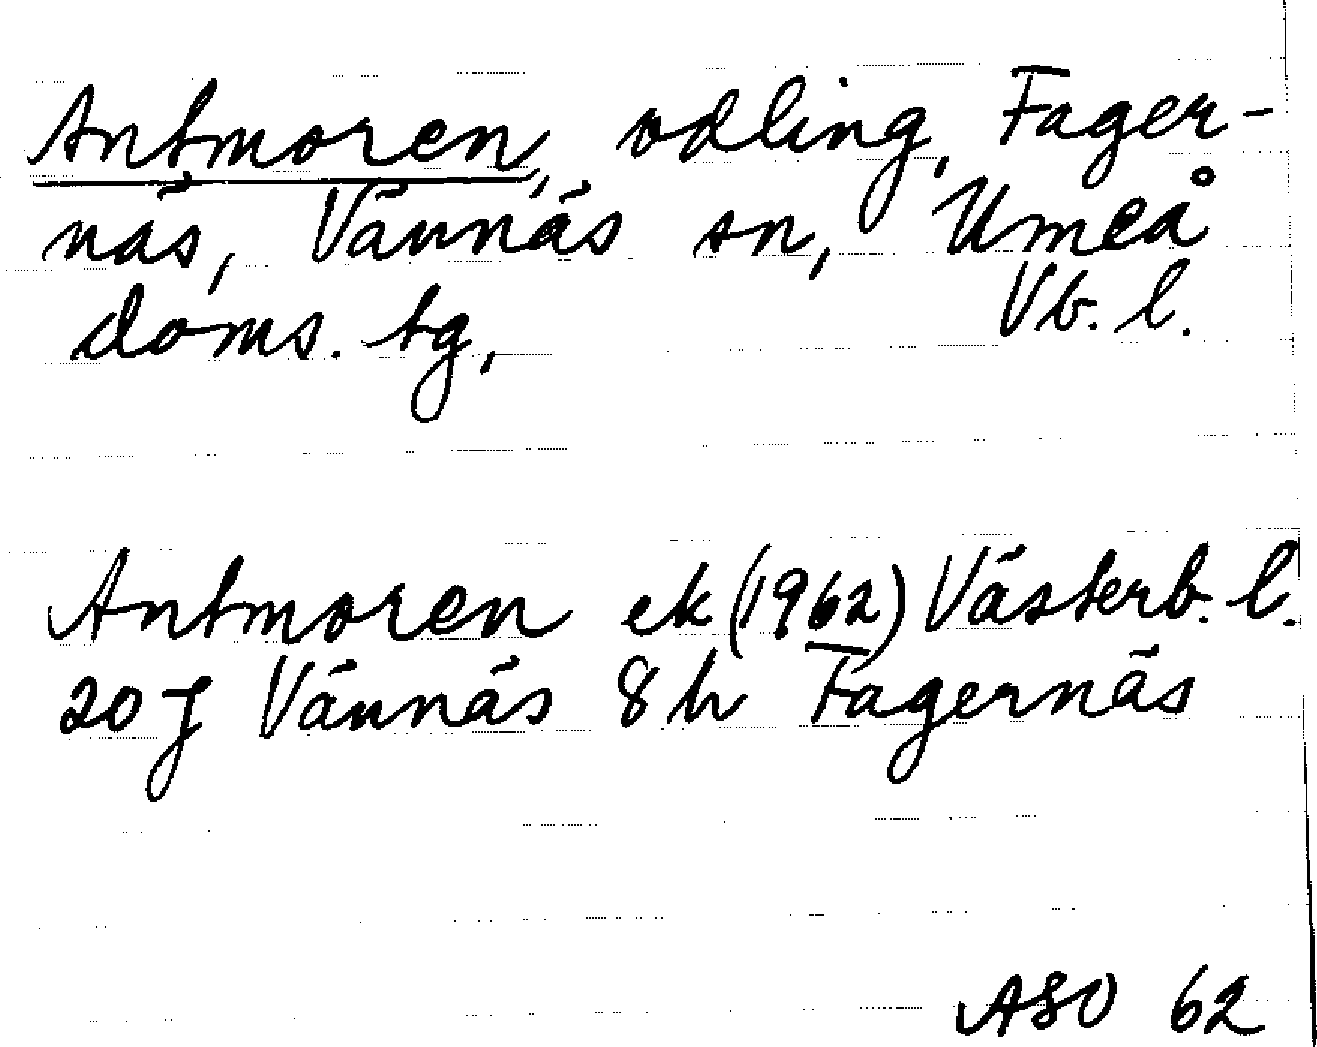 Antmoren, odling, Fager-
näs, Vännäs sn, Umeå
doms. tg, Vb. l.
Antmoren ek (1962) Västerb. l.
20 J Vännäs 8 h Fagernäs
ASO 62